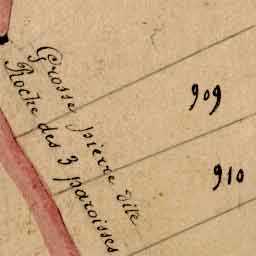 Grosse pierre dite
Roche des 3 paroisses
909
910